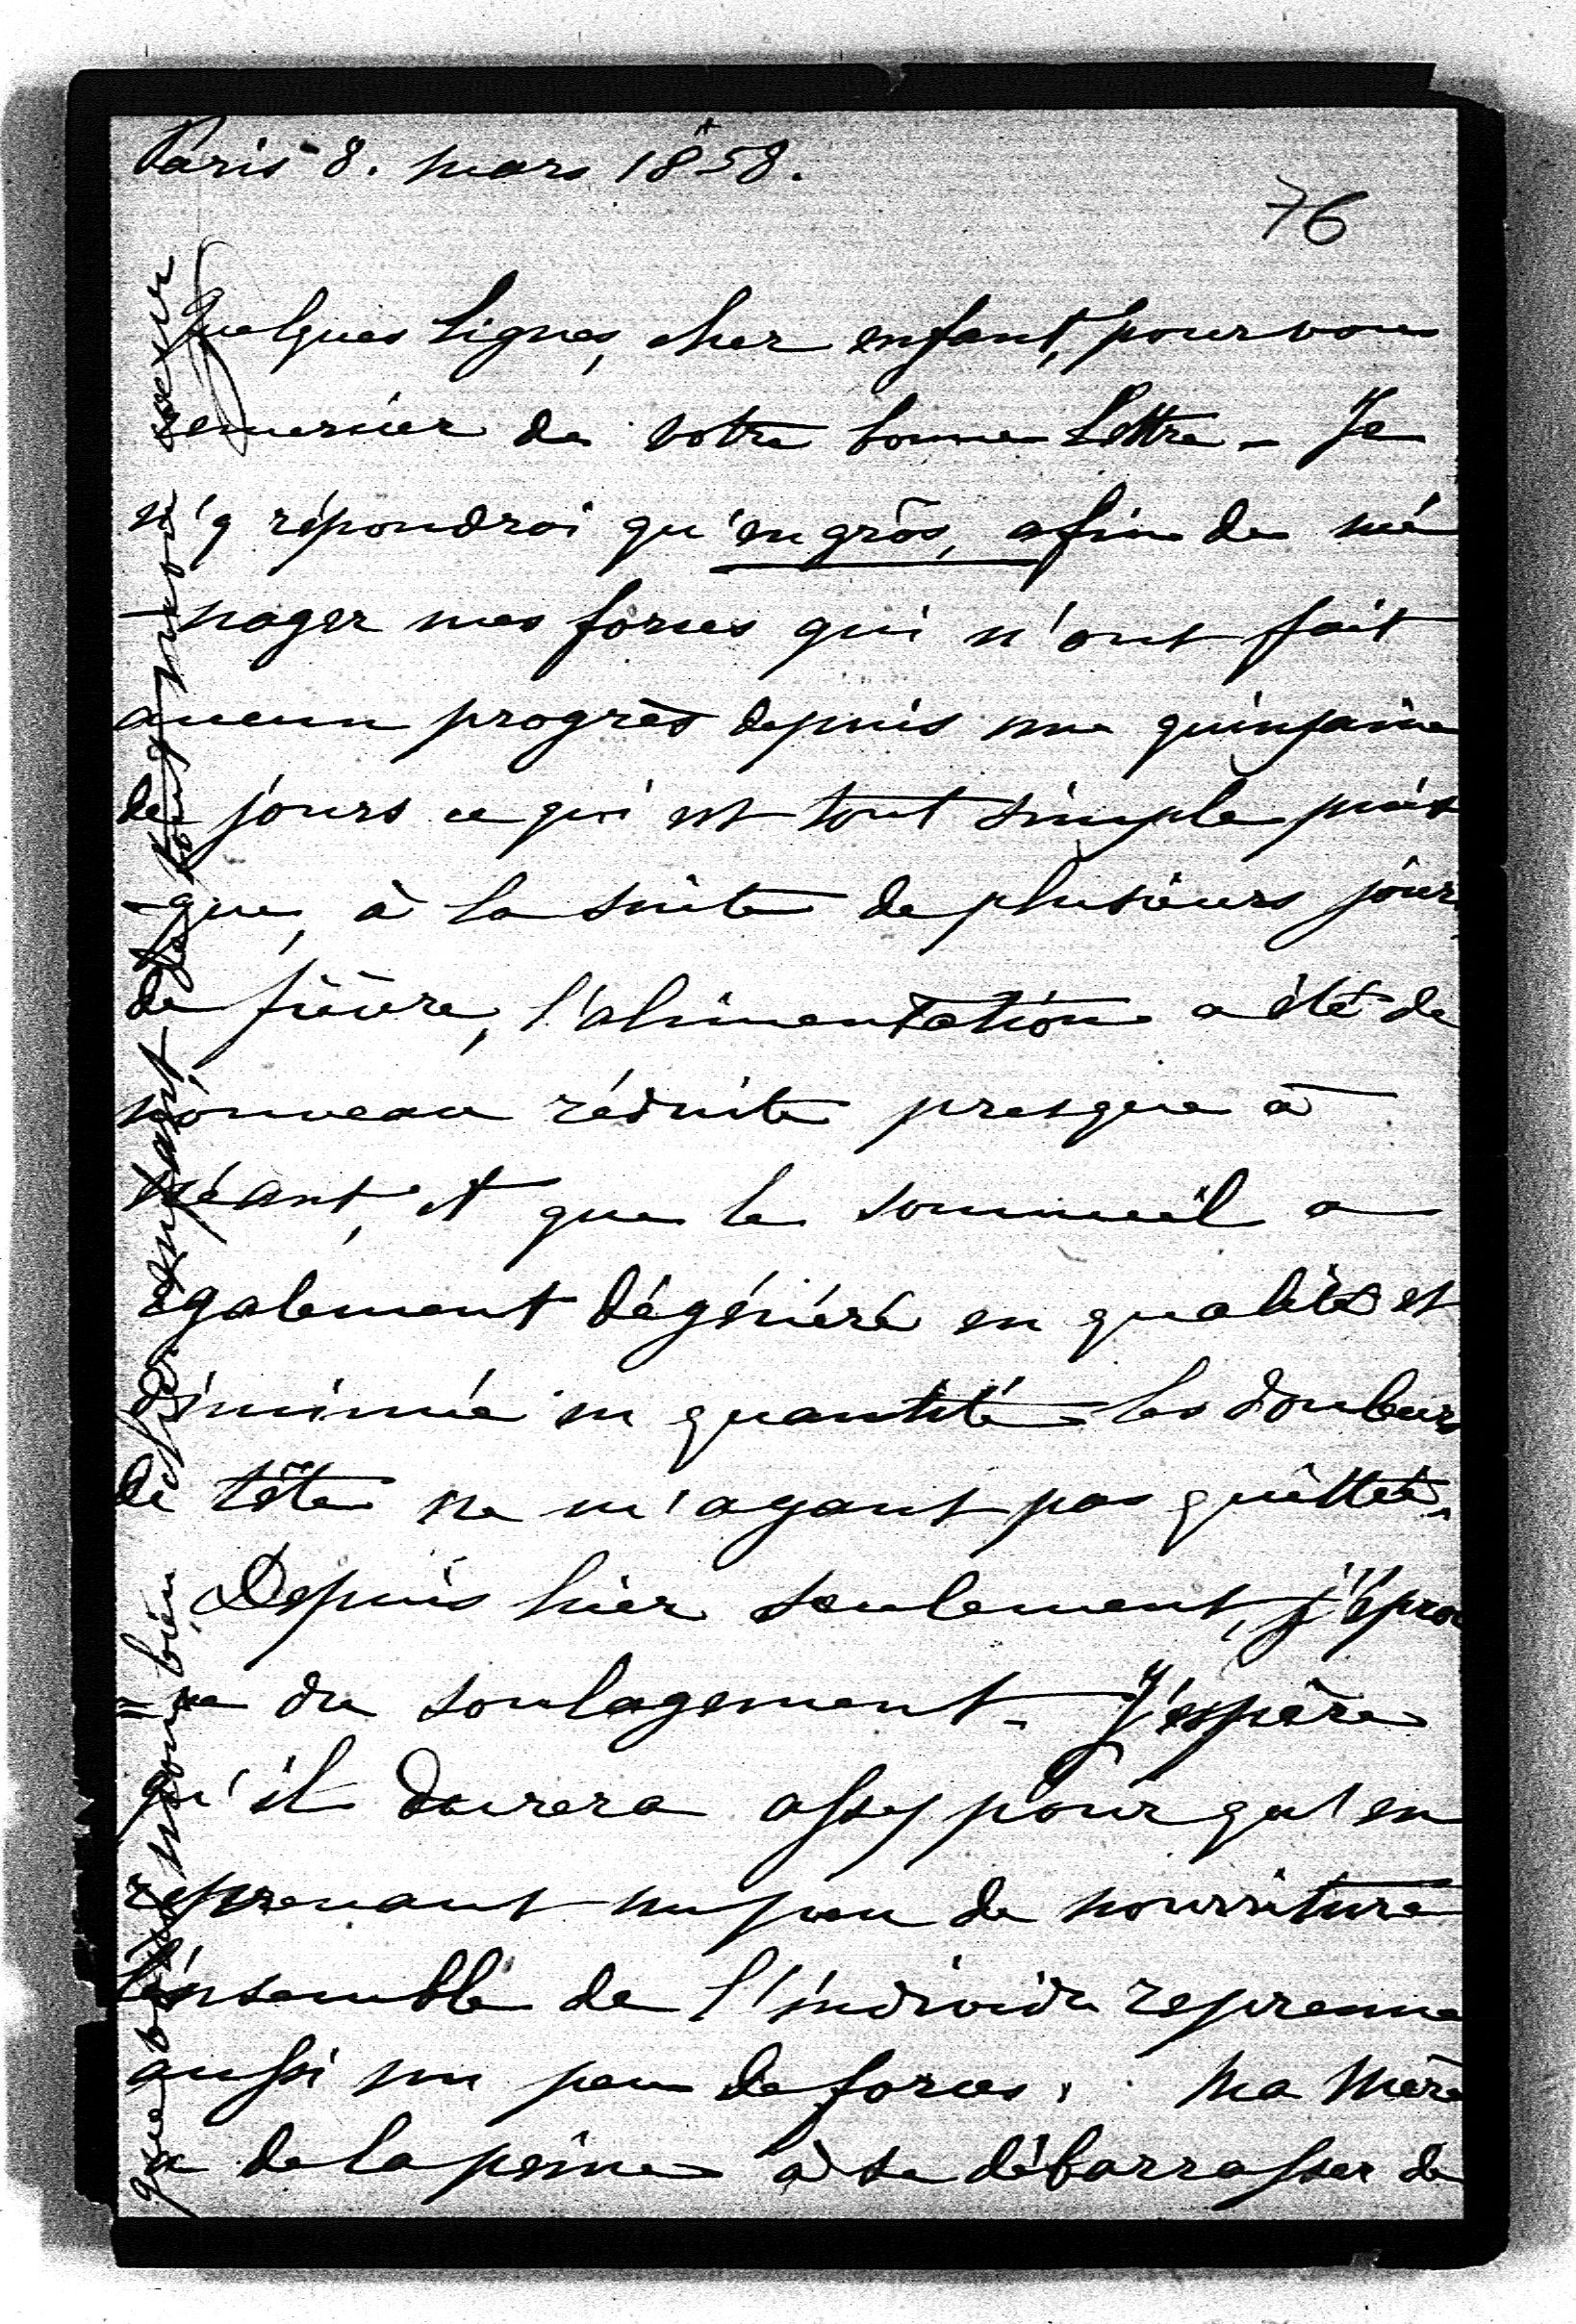 Paris 8. mars 1858.
76
Quelques lignes, cher enfant, pour vous
remercier de votre bonne lettre - Je
n'y répondrai qu'en gros, afin de mé
-nager mes forces qui n'ont fait
aucun progrès depuis une quinzaine
de jours ce qui est tout simple puis
-que, à la suite de plusieurs jours
de fièvre, l'alimentation a été de
nouveau réduite presque à
néant, et que le sommeil a
également dégénéré en qualité et
diminué en quantité les douleurs
de tête ne m'ayant pas quittée.
Depuis hier seulement, j'éprou
=ve du soulagement - J'espère
qu'il durera assez pour qu'en
reprenant un peu de nourriture
l'ensemble de l'individu reprenne
aussi un peu de forces. Ma Mère
a de la peine à se débarrasser de
que bien mon bien
cher enfant, la